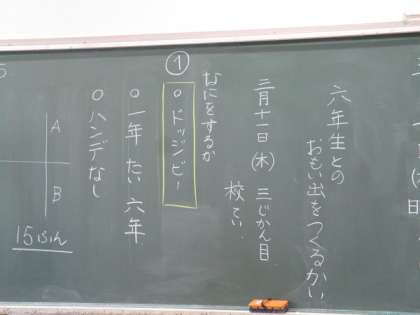 六年生との
おもい出をつくるかい
三月十一日(木) 三じかん目
校てい
なにをするか
①
○ドッジビー
○一年たい六年
○ハンデなし
A
B
15ふん